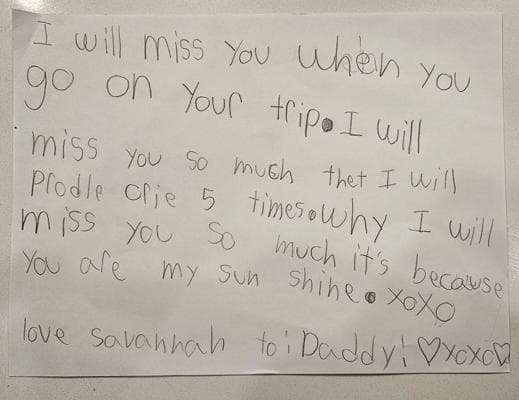 I will miss you when you
go on your trip. I will
miss you so much thet I will
Prodle crie 5 times. Why I will
miss you so much it's because
You are my sun shine. XOXO
love savannah to: Daddy! ♡XOXO♡